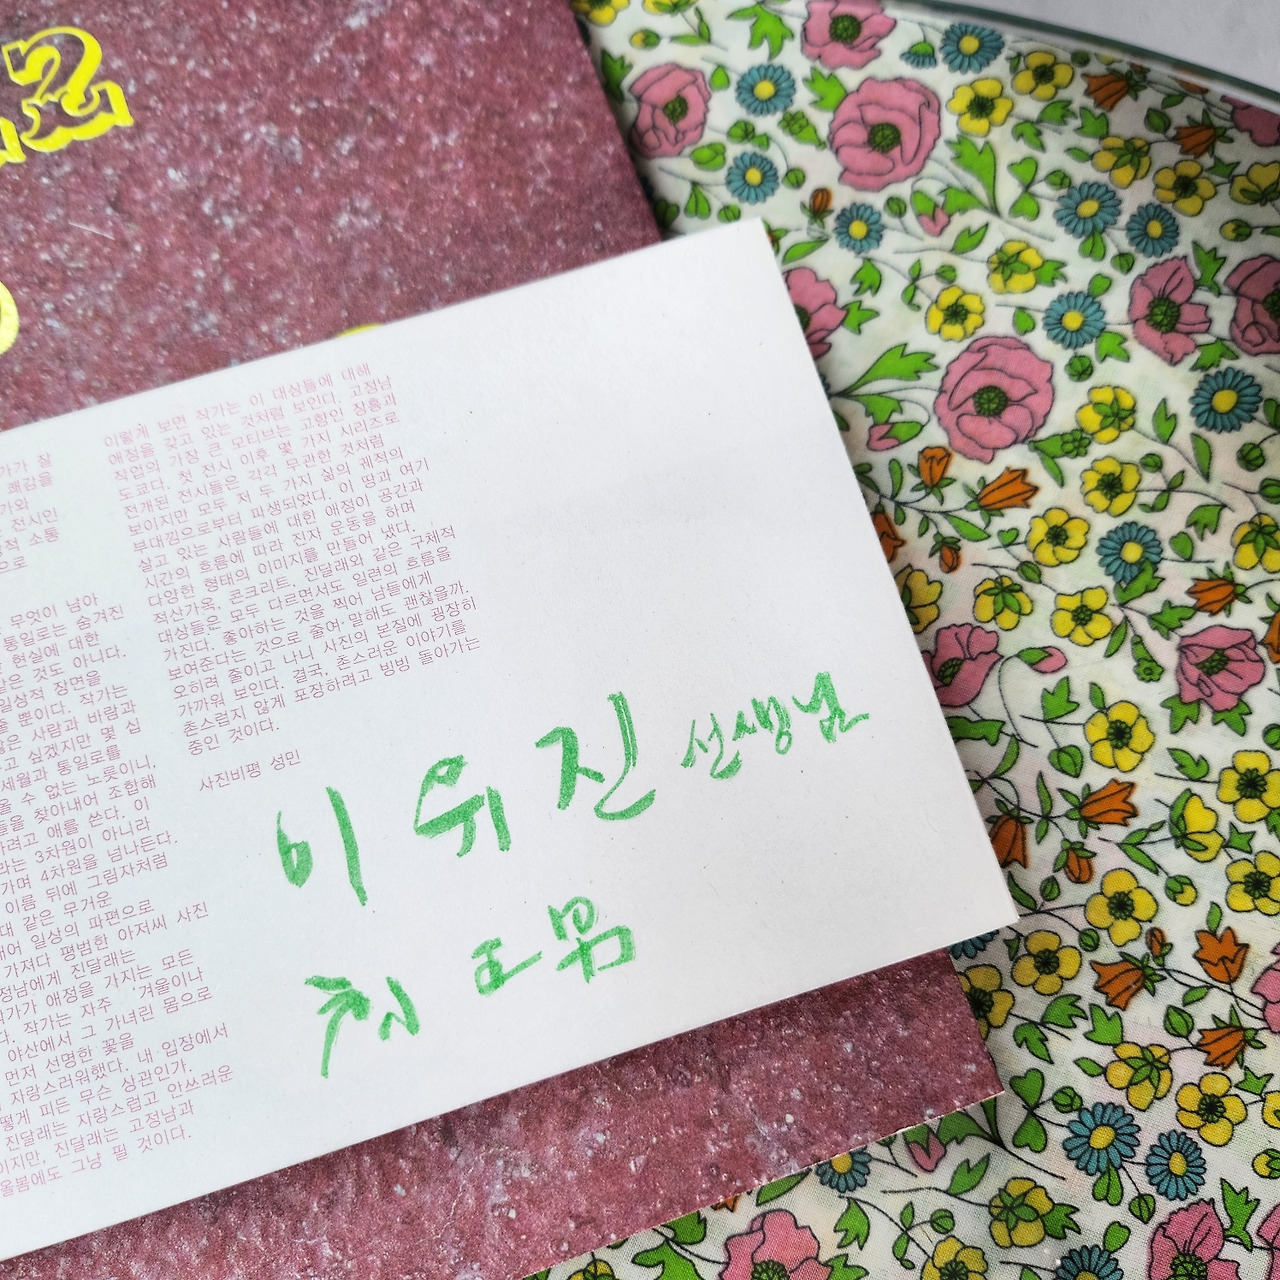 2
가가 잘
쾌감을
가와
전시인
소통
으로
무엇이 남아
통일로는 숨겨진
현실에 대한
같은 것도 아니다.
일상적 장면을
줄 뿐이다. 작가는
않은 사람과 바람과
고 싶겠지만 몇 십
세월과 통일로를
을 수 없는 노릇이니,
들을 찾아내어 조합해
가려고 애를 쓴다. 이
라는 3차원이 아니라
가며 4차원을 넘나든다.
이름 뒤에 그림자처럼
대 같은 무거운
내어 일상의 파편으로
가져다 평범한 아저씨 사진
정남에게 진달래는
작가가 애정을 가지는 모든
다. 작가는 자주 '겨울이나
야산에서 그 가녀린 몸으로
먼저 선명한 꽃을
자랑스러워했다. 내 입장에서
떻게 피든 무슨 상관인가.
진달래는 자랑스럽고 안쓰러운
이지만, 진달래는 고정남과
올봄에도 그냥 필 것이다.
이렇게 보면 작가는 이 대상들에 대해
애정을 갖고 있는 것처럼 보인다. 고정남
작업의 가장 큰 모티브는 고향인 장흥과
도쿄다. 첫 전시 이후 몇 가지 시리즈로
전개된 전시들은 각각 무관한 것처럼
보이지만 모두 저 두 가지 삶의 궤적의
부대낌으로부터 파생되었다. 이 땅과 여기
살고 있는 사람들에 대한 애정이 공간과
시간의 흐름에 따라 진자 운동을 하며
다양한 형태의 이미지를 만들어 냈다.
적산가옥, 콘크리트, 진달래와 같은 구체적
대상들은 모두 다르면서도 일련의 흐름을
가진다. 좋아하는 것을 찍어 남들에게
보여준다는 것으로 줄여 말해도 괜찮을까.
오히려 줄이고 나니 사진의 본질에 굉장히
가까워 보인다. 결국, 촌스러운 이야기를
촌스럽지 않게 포장하려고 빙빙 돌아가는
중인 것이다.
사진비평 성민
이유진 선생님